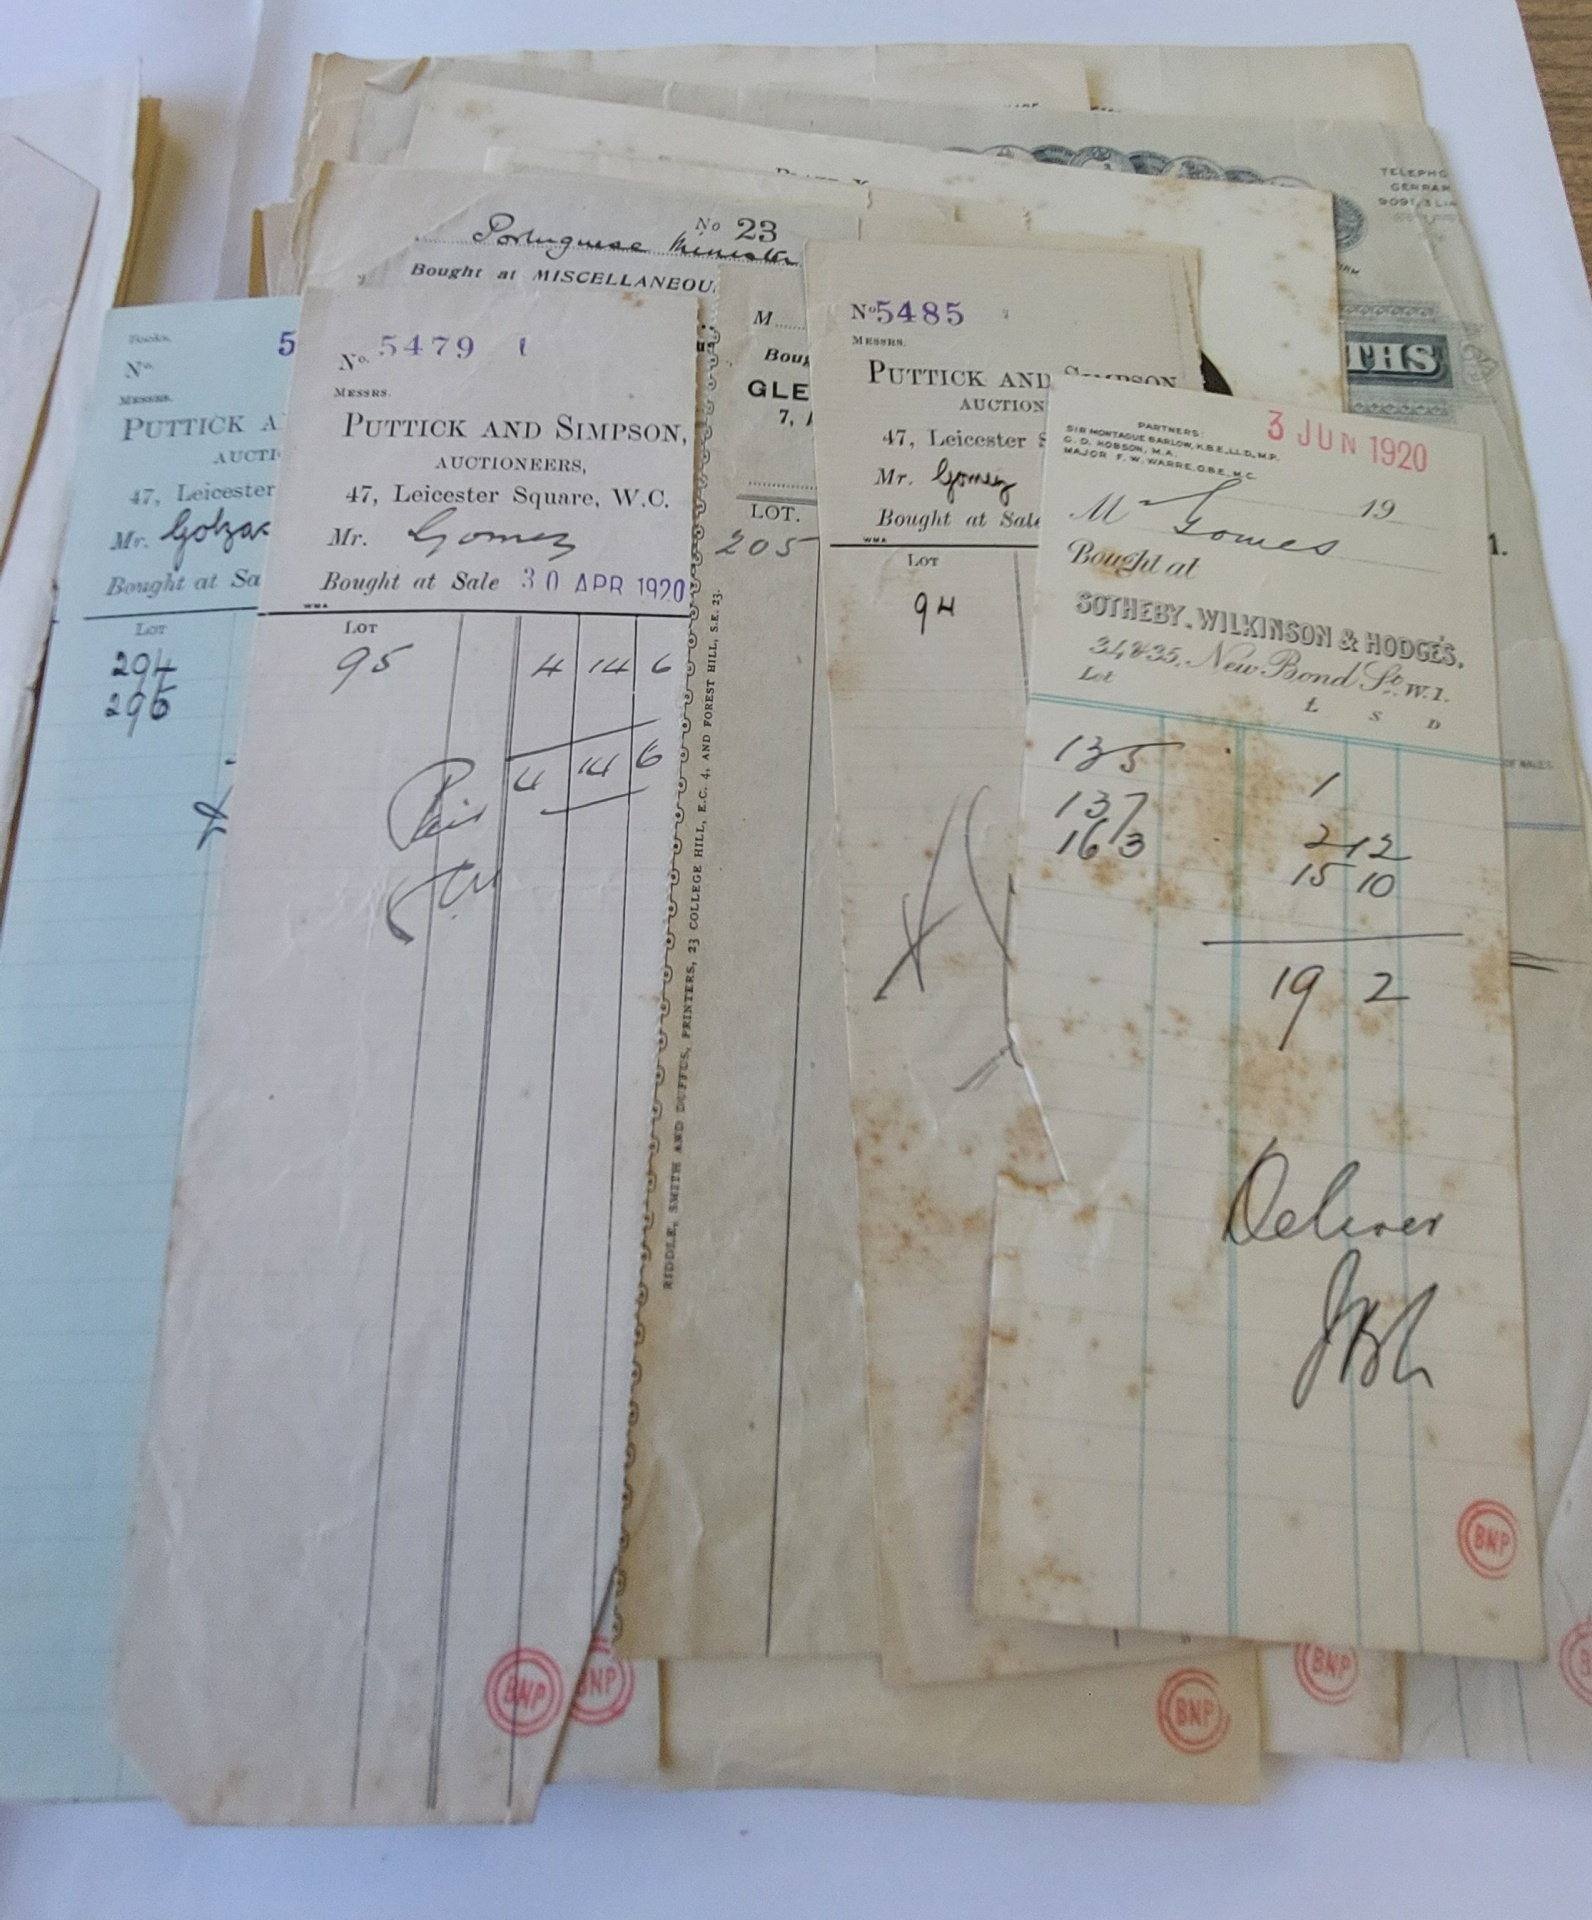 TELEPHO
GERRAR
9091, 3 LIN
No 23
Portuguese Minister
Bought at MISCELLANEOU
THS
Books.
No. 5
MESSRS.
PUTTICK A
AUCTI
47, Leicester
Mr.
Bought at Sa
LOT
294
296
No. 5479
MESSRS.
PUTTICK AND SIMPSON,
AUCTIONEERS,
47, Leicester Square, W.C.
Mr. Gomez
Bought at Sale 30 APR 1920
WMA
LOT
95 4 14 6
4 14 6
BNP
BNP
RIDDLE, SMITH AND DUFFUS, PRINTERS, 23 COLLEGE HILL, E.C. 4, AND FOREST HILL, S.E. 23.
M
Boug
GLE
7,
LOT.
205
No 5485
MESSRS.
PUTTICK AND SIMPSON
AUCTION
47, Leicester S
Mr. Gomez
Bought at Sale
WMA
LOT
94
BNP
BNP
3 JUN 1920
PARTNERS:
SIR MONTAGUE BARLOW, K.B.E., LL.D., M.P.
G. D. HOBSON, M.A.
MAJOR F. W. WARRE, O.B.E., M.C.
19
M Gomes
Bought at
SOTHEBY, WILKINSON & HODGE'S.
34 & 35, New Bond St. W.1.
Lot £ S D
135 1
137 2 12
163 15 10
19 2
Deliver
BNP
1.
OF WALES